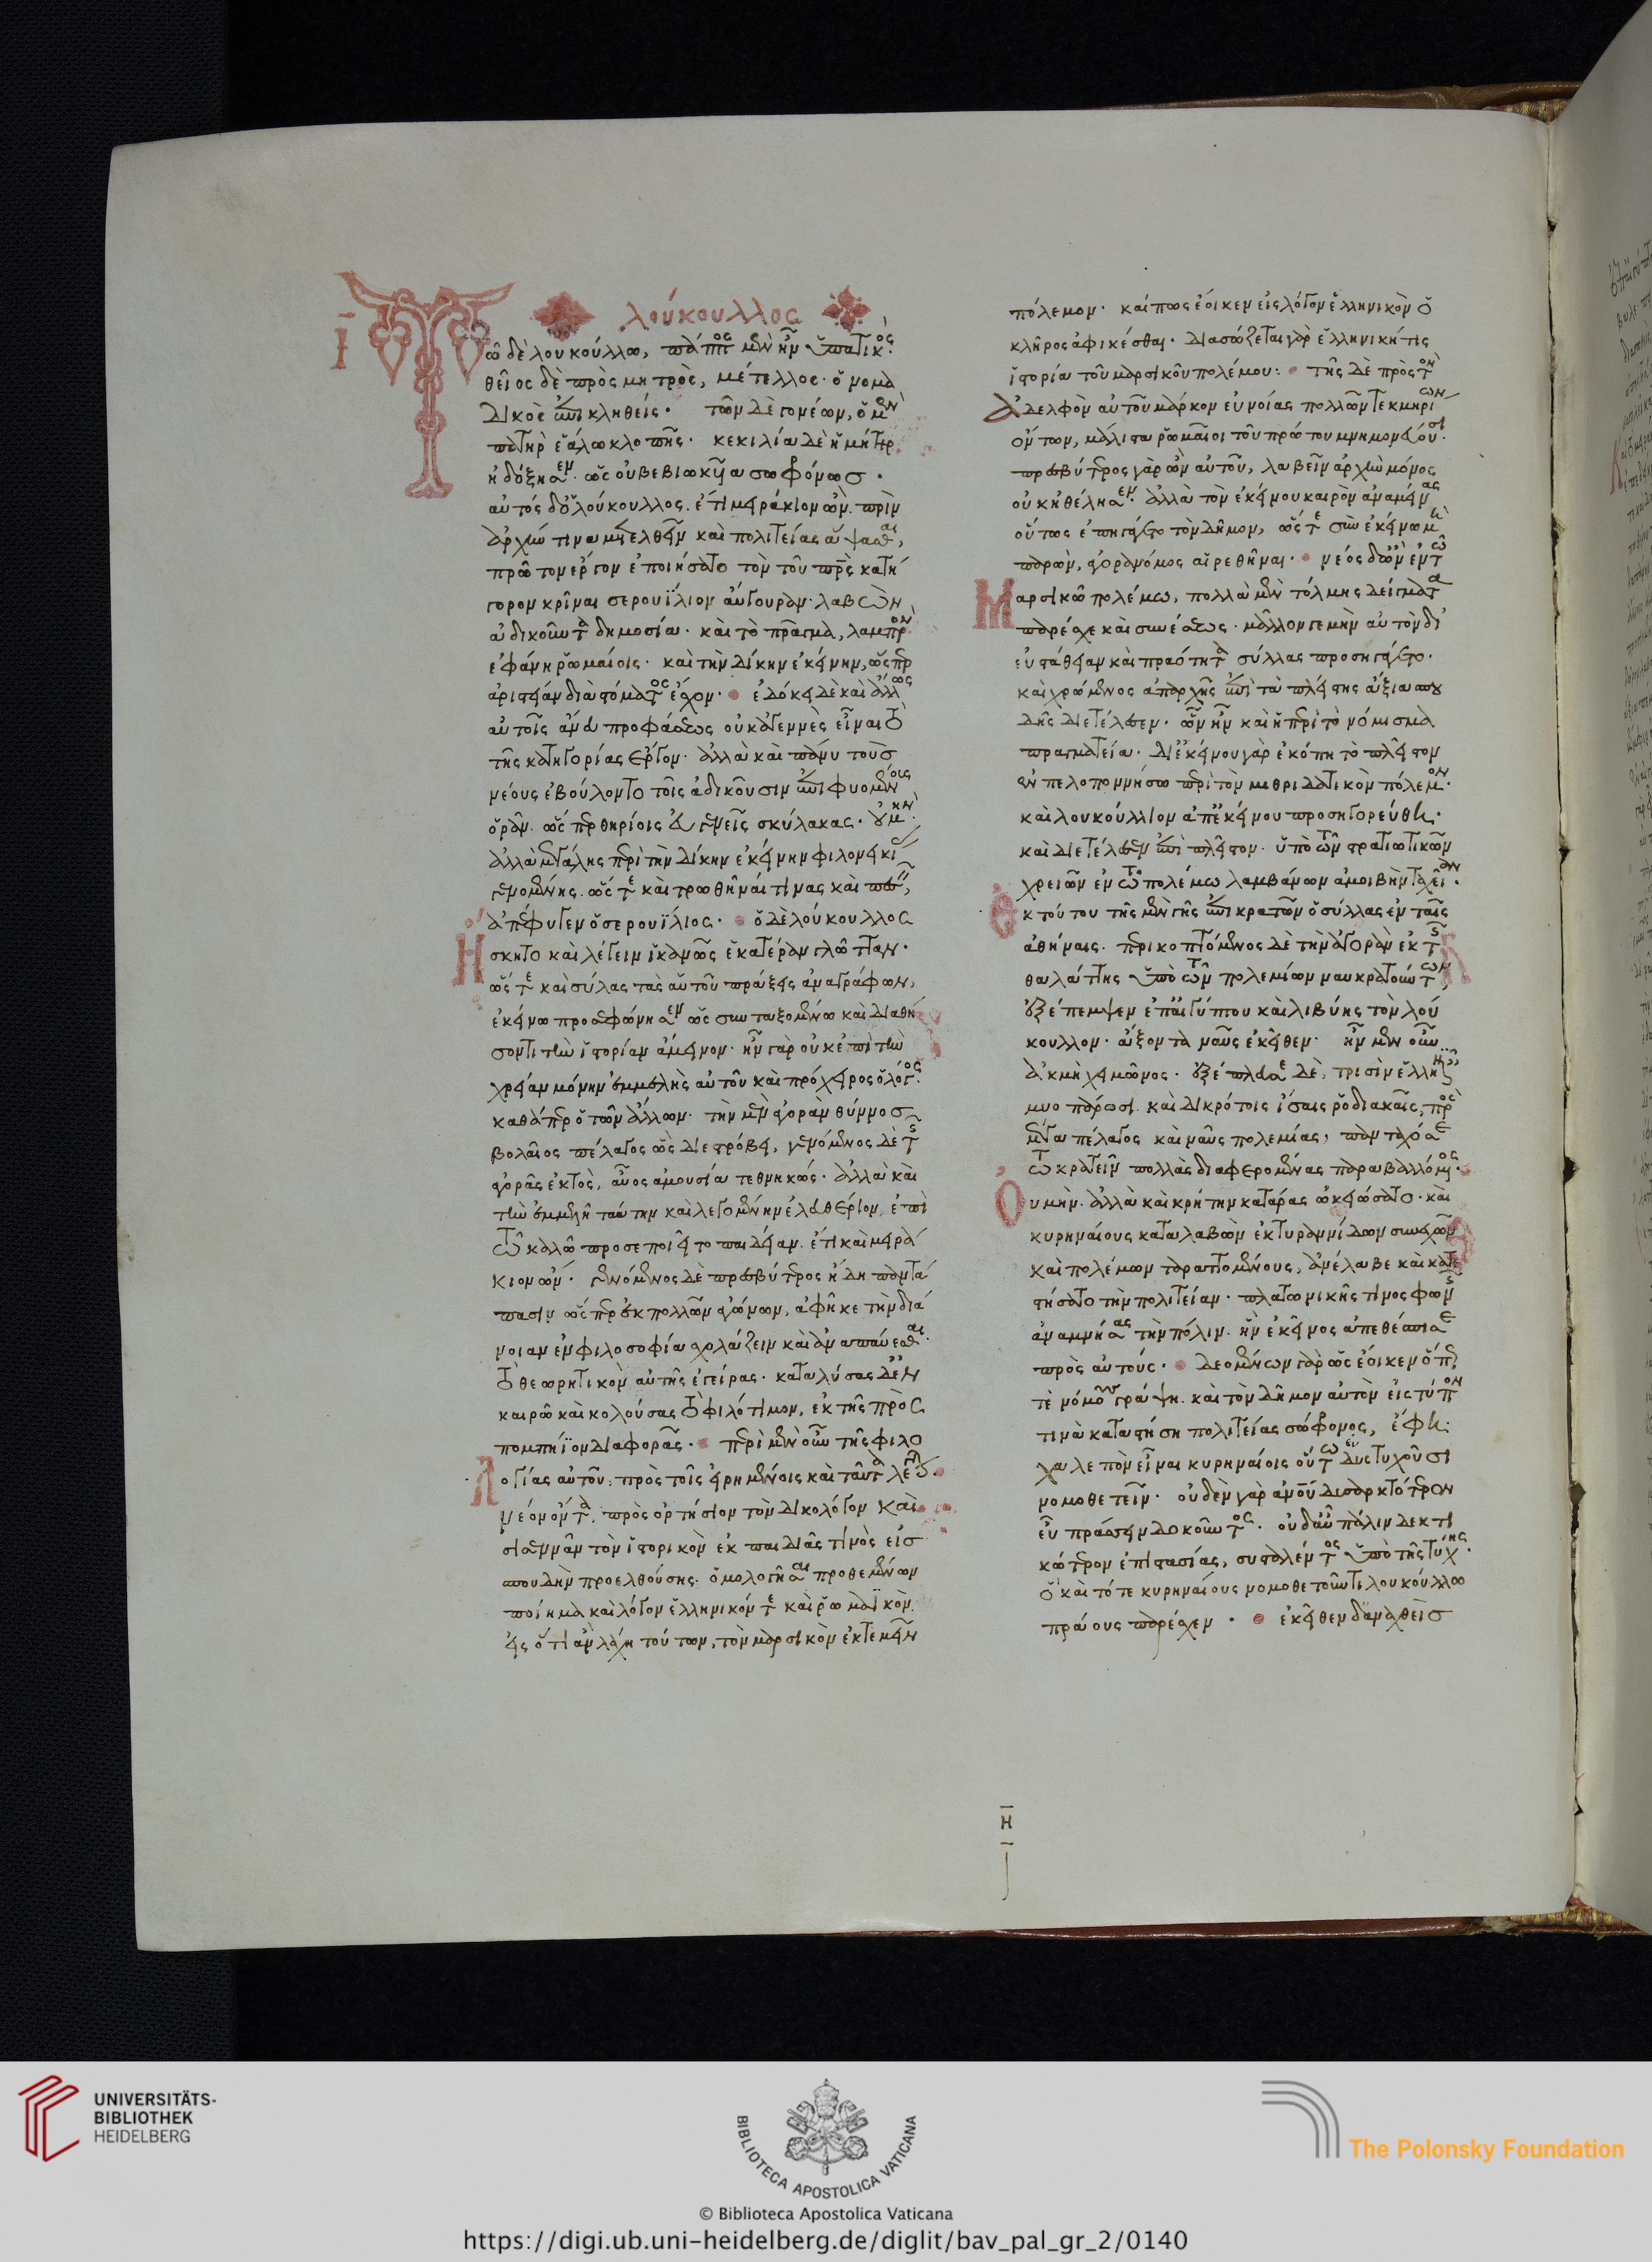 Ι λούκουλλος
Τῶ δὲ λουκούλλω, πάππος μὲν ἦν ὑπατικός·
θεῖος δὲ πρὸς μητρὸς, μέτελλος· ὁ νομα
δικὸς ἐπικληθείς· τῶν δὲ γονέων, ὁ μὲν
πατὴρ ἑάλω κλοπῆς· κεκιλία δὲ ἡ μήτηρ
ἠδόξησεν· ὡς οὐ βεβιωκυῖα σωφρόνως·
αὐτὸς δ' ὁ λούκουλλος, ἔτι μειράκιον ὢν, πρὶν
ἀρχήν τινα μετελθεῖν καὶ πολιτείας ἅψασθαι,
πρῶτον ἔργον ἐποιήσατο τὸν τοῦ πρς κατή
γορον κρῖναι σερουΐλιον αὔγουραν· λαβὼν
ἀδικοῦντα δημοσία· καὶ τὸ πρᾶγμα, λαμπρὸν
ἐφάνη ῥωμαίοις· καὶ τὴν δίκην ἐκείνην, ὥσπερ
ἀριστείαν διὰ στόματος εἶχον· ἐδόκει δὲ καὶ ἄλλως
αὐτοῖς ἄνευ προφάσεως οὐκ ἀγεννὲς εἶναι τὸ
τῆς κατηγορίας ἔργον· ἀλλὰ καὶ πάνυ τοὺς
νέους ἐβούλοντο τοῖς ἀδικοῦσιν ἐπιφυομένους
ὁρᾶν· ὥσπερ θηρίοις εὐγενεῖς σκύλακας· οὐ μὴν
ἀλλὰ μεγάλης περὶ τὴν δίκην ἐκείνην φιλονεικί
γενομένης· ὥστε καὶ τρωθῆναί τινας καὶ πεσεῖν,
ἀπέφυγεν ὁ σερουΐλιος· ὁ δὲ λούκουλλος
Ἤσκητο καὶ λέγειν ἱκανῶς ἑκατέραν γλῶτταν·
ὥστε καὶ σύλας τὰς αὑτοῦ πράξεις ἀναγράφων,
ἐκείνω προσεφώνησεν ὡς συνταξομένω καὶ διαθή
σοντι τὴν ἱστορίαν ἄμεινον· ἦν γὰρ οὐκ ἐπὶ τὴν
χρείαν μόνην ἐμμελὴς αὐτοῦ καὶ πρόχειρος ὁ λόγος·
καθάπερ ὁ τῶν ἄλλων· τὴν μὲν ἀγορὰν θύννος
βολαῖος πέλαγος ὣς διεστρόβει, γενόμενος δὲ τῆς
ἀγορᾶς ἐκτὸς, αὖος ἀμουσία τεθνηκώς· ἀλλὰ καὶ
τὴν ἐμμελῆ ταύτην καὶ λεγομένην ἐλευθέριον, ἐπὶ
τῶ καλῶ προσεποιεῖτο παιδείαν, ἔτι καὶ μειρά
κιον ὤν· γενόμενος δὲ πρεσβύτερος ἤδη παντά
πασιν ὥσπερ ἐκ πολλῶν ἀγώνων, ἀφῆκε τὴν διά
νοιαν ἐν φιλοσοφία σχολάζειν καὶ ἀναπαύεσθαι·
τὸ θεωρητικὸν αὐτῆς ἐγείρας· καταλύσας δ' ἐν
καιρῶ καὶ κολούσας τὸ φιλότιμον, ἐκ τῆς πρὸς
πομπήϊον διαφορᾶς· περὶ μὲν οὖν τῆς φιλο
Λογίας αὐτοῦ, πρὸς τοῖς εἰρημένοις καὶ ταῦτα λέγεται·
νέον ὄντα, πρὸς ὁρτήσιον τὸν δικολόγον καὶ
σισεννᾶν τὸν ἱστορικὸν ἐκ παιδιᾶς τινὸς εἰς
σπουδὴν προελθούσης· ὁμολογῆσαι προθεμένων
ποίημα καὶ λόγον ἑλληνικόν τε καὶ ῥωμαϊκὸν,
εἰς ὅτι ἂν λάχη τούτων, τὸν μαρσικὸν ἐκτενεῖν
πόλεμον· καί πως ἔοικεν εἰς λόγον ἑλληνικὸν ὁ
κλῆρος ἀφικέσθαι· διασώζεται γὰρ ἑλληνική τις
ἱστορία τοῦ μαρσικοῦ πολέμου· τῆς δὲ πρὸς τὸν
ἀδελφὸν αὐτοῦ μάρκον εὐνοίας πολλῶν τεκμηρίων
ὄντων, μάλιστα ῥωμαῖοι τοῦ πρώτου μνημονεύουσι·
πρεσβύτερος γὰρ ὢν αὐτοῦ, λαβεῖν ἀρχὴν μόνος
οὐκ ἠθέλησεν· ἀλλὰ τὸν ἐκείνου καιρὸν ἀναμείνας
οὕτως ἐπηγάγετο τὸν δῆμον, ὥστε σὺν ἐκείνω μὴ
παρὼν, ἀγορανόμος αἱρεθῆναι· νέος δ' ὢν ἐν τῶ
Μαρσικῶ πολέμω, πολλὰ μὲν τόλμης δείγματα
παρέσχε καὶ συνέσεως· μᾶλλόν γε μὴν αὐτὸν δι'
εὐστάθειαν καὶ πραότητα σύλλας προσηγάγετο·
καὶ χρώμενος ἀπ' ἀρχῆς ἐπὶ τὰ πλείστης ἄξια σπου
δῆς διετέλεσεν· ὧν ἦν καὶ ἡ περὶ τὸ νόμισμα
πραγματεία· δι' ἐκείνου γὰρ ἐκόπη τὸ πλεῖστον
ἐν πελοποννήσω περὶ τὸν μιθριδατικὸν πόλεμον·
καὶ λουκούλλιον ἀπ' ἐκείνου προσηγορεύθη·
καὶ διετέλεσεν ἐπὶ πλεῖστον· ὑπὸ τῶν στρατιωτικῶν
χρειῶν ἐν τῶ πολέμω λαμβάνων ἀμοιβὴν ταχεῖαν·
Ἐκ τούτου τῆς μὲν γῆς ἐπικρατῶν ὁ σύλλας ἐν ταῖς
ἀθήναις· περικοπτόμενος δὲ τὴν ἀγορὰν ἐκ τῆς
θαλάττης ὑπὸ τῶν πολεμίων ναυκρατούντων,
ἐξέπεμψεν ἐπ' αἰγύπτου καὶ λιβύης τὸν λού
κουλλον· ἄξοντα ναῦς ἐκεῖθεν· ἦν μὲν οὖν
ἀκμὴ χειμῶνος· ἐξέπλευσε δὲ, τρισὶν ἑλληνικοῖς
μυοπάρωσι καὶ δικρότοις ἴσαις ῥοδιακαῖς, πρὸς
μέγα πέλαγος καὶ ναῦς πολεμίας, πανταχόσε
τῶ κρατεῖν πολλὰς διαφερομένας παραβαλλόμενος·
Οὐ μὴν ἀλλὰ καὶ κρήτην κατάρας ὠκειώσατο· καὶ
κυρηναίους καταλαβὼν ἐκ τυραννίδων συνεχῶν
καὶ πολέμων ταραττομένους, ἀνέλαβε καὶ κατε
στήσατο τὴν πολιτείαν· πλατωνικῆς τινος φωνῆς
ἀναμνήσας τὴν πόλιν· ἣν ἐκεῖνος ἀπεθέσπισε
πρὸς αὐτούς· δεομένων γὰρ ὡς ἔοικεν ὅπως
τὲ νόμους γράψη καὶ τὸν δῆμον αὐτὸν εἰς τύπον
τινὰ καταστήση πολιτείας σώφρονος, ἔφη·
χαλεπὸν εἶναι κυρηναίοις οὕτω εὐτυχοῦσι
νομοθετεῖν· οὐδὲν γὰρ ἀν̅ου̅ δυσαρκτότερον
εὖ πράσσειν δοκοῦντος· οὐδ' αὖ πάλιν δεκτι
κώτερον ἐπιστασίας, συσταλέντος ὑπὸ τῆς τύχης·
ὃ καὶ τότε κυρηναίους νομοθετοῦντι λουκούλλω
πράους παρέσχεν· ἐκεῖθεν δ' ἀναχθεὶς
η
UNIVERSITÄTS-
BIBLIOTHEK
HEIDELBERG
BIBLIOTECA APOSTOLICA VATICANA
The Polonsky Foundation
© Biblioteca Apostolica Vaticana
https://digi.ub.uni-heidelberg.de/diglit/bav_pal_gr_2/0140